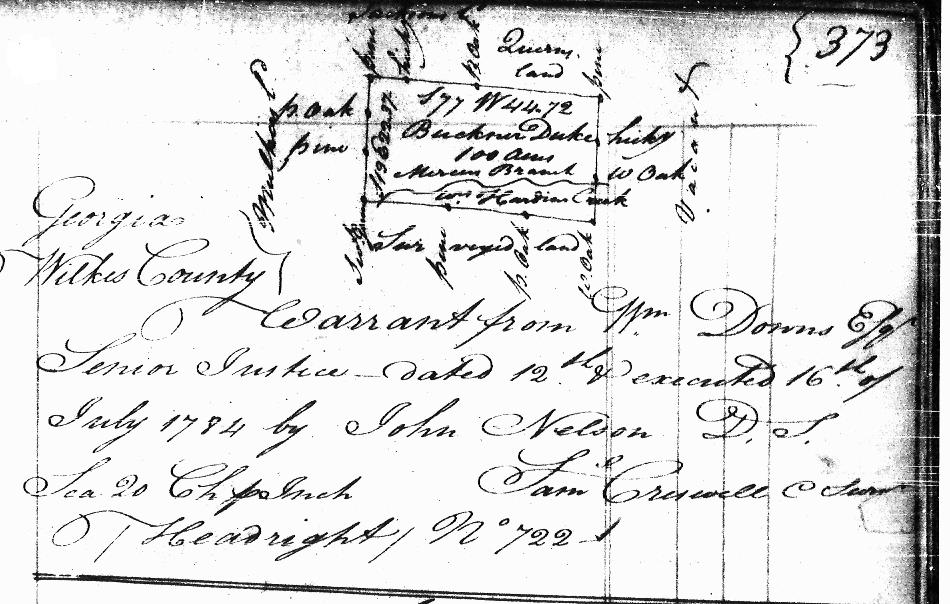 373
Query
land
pine
p. Oak
pine
p. Oak
pine
S77 W 44.72
Buckner Duke
100 Acres
Mercers Branch
Wm Hardins Creek
hicky
W Oak
Vacant
Surveyed land
pine
p. Oak
Georgia
Wilkes County
Warrant from Wm Downs Esqr
Senior Justice dated 12th & executed 16th of
July 1784 by John Nelson D. S.
Sca 20 Ch p Inch Saml Creswell C Surr
(Headright) No 722